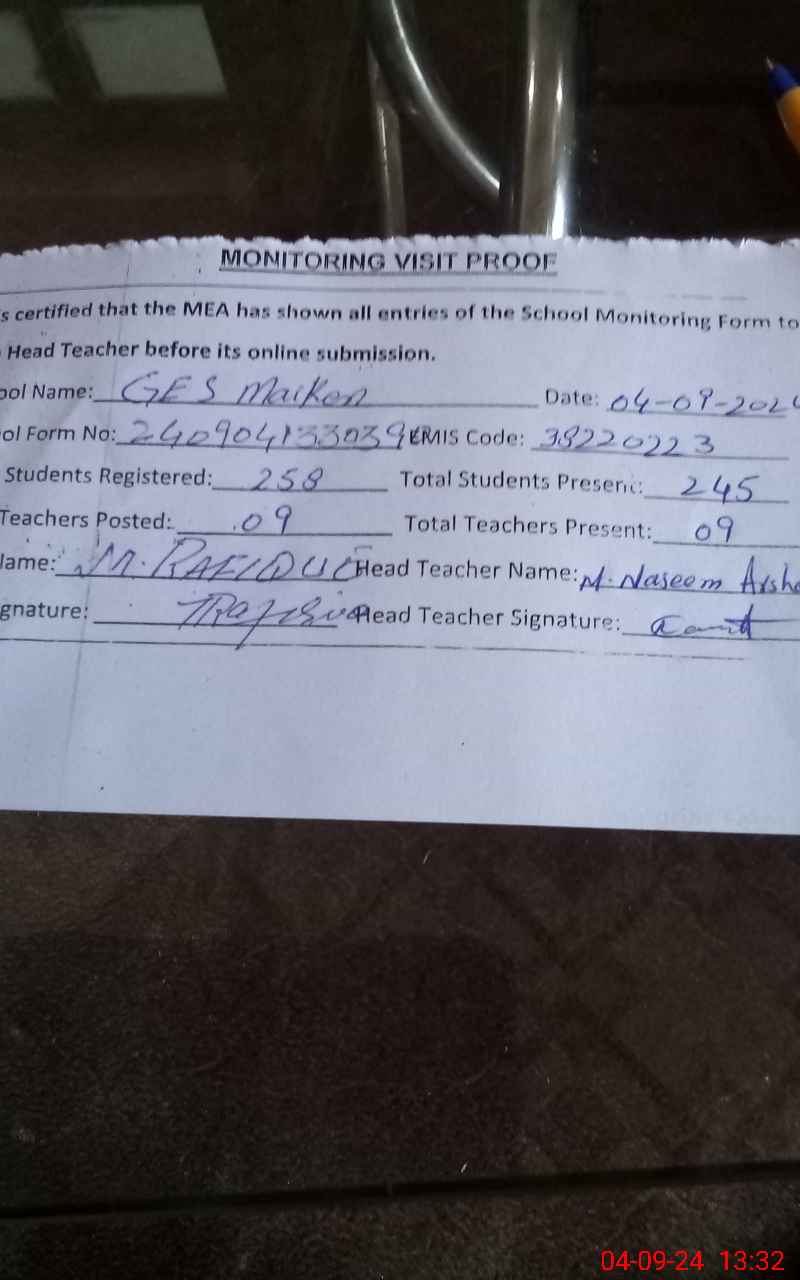 MONITORING VISIT PROOF
s certified that the MEA has shown all entries of the School Monitoring Form to
Head Teacher before its online submission.
ool Name: GES Maiken Date: 04-09-202
ol Form No: EMIS Code: 38220223
Students Registered: 258 Total Students Present: 245
Teachers Posted: 09 Total Teachers Present: 09
lame: M. RAFIQUE Head Teacher Name: M. Naseem Arsha
gnature: Head Teacher Signature:
04-09-24 13:32